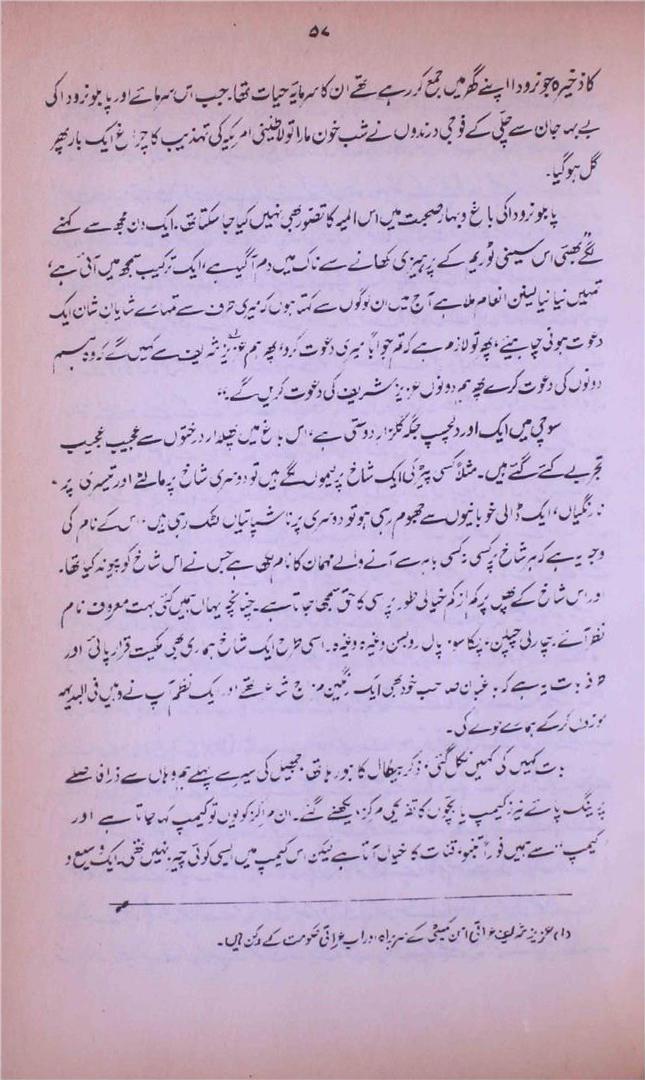 ۵۷
کا ذخیرہ جو نرودا اپنے گھر میں جمع کر رہے تھے ان کا سرمایۂ حیات تھا۔ جب اس سرمائے اور پابلو نرودا کی
بے بہا جان سے چلّی کے فوجی درندوں نے شب خون مارا تو لاطینی امریکہ کی تہذیب کا چراغ ایک بار پھر
گل ہو گیا۔
پابلو نرودا کی باغ و بہار صحبت میں اس المیہ کا تصور بھی نہیں کیا جا سکتا تھا۔ ایک دن مجھ سے کہنے
لگے "بھئی اس سینی ٹوریم کے پرہیزی کھانے سے ناک میں دم آ گیا ہے، ایک ترکیب سمجھ میں آئی ہے،
تمہیں نیا نیا لینن انعام ملا ہے آج میں ان لوگوں سے کہتا ہوں کہ میری طرف سے تمہارے شایانِ شان ایک
دعوت ہونی چاہیئے، پھر تو لازم ہے کہ تم جواباً میری دعوت کرو، پھر ہم عزیز شریف سے کہیں گے کہ وہ ہم
دونوں کی دعوت کرے پھر ہم دونوں عزیز شریف کی دعوت کریں گے۔"
سوچی میں ایک اور دلچسپ جگہ گلزارِ دوستی ہے، اس باغ میں پھلدار درختوں سے عجیب عجیب
تجربے کئے گئے ہیں۔ مثلاً کسی پیڑ کی ایک شاخ پر لیموں لگے ہیں تو دوسری شاخ پر مالٹے اور تیسری پر
نارنگیاں، ایک ڈالی خوبانیوں سے جھوم رہی ہو تو دوسری پر ناشپاتیاں لٹک رہی ہیں، اس کے نام کی
وجہ یہ ہے کہ ہر شاخ پر کسی نہ کسی باہر سے آنے والے مہمان کا نام لکھا ہے جس نے اس شاخ کو پیوند کیا تھا۔
اور اس شاخ کے پھل پر کم از کم خیالی طور پر اسی کا حق سمجھا جاتا ہے۔ چنانچہ یہاں ہمیں کئی بہت معروف نام
نظر آئے۔ چارلی چپلن، پکاسو، پال روبسن وغیرہ وغیرہ۔ اسی طرح ایک شاخ ہماری بھی ملکیت قرار پائی اور
بات یہ ہے کہ باغبان صاحب خود بھی ایک رنگین مزاج شاعر تھے اور ایک نظم آپ نے وہیں فی البدیہہ
موزوں کر کے ہمارے حوالے کی۔
بات کہیں کی کہیں نکل گئی، ذکر بیکال کا ہو رہا تھا، جھیل کی سیر سے پہلے ہم وہاں سے ذرا فاصلے
پر ینگ پائے نیرز کیمپ یا بچوں کا تفریحی مرکز دیکھنے گئے۔ ان مراکز کو یوں تو کیمپ کہا جاتا ہے اور
کیمپ سے ہمیں فوراً تنبو قنات کا خیال آتا ہے لیکن اس کیمپ میں ایسی کوئی چیز نہیں تھی۔ ایک وسیع و
(۱) عزیز شریف عراقی امن کمیٹی کے سربراہ اور اب عراقی حکومت کے رکن ہیں۔